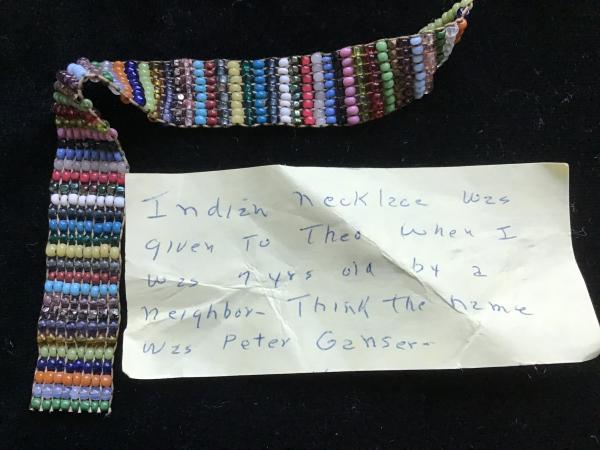 Indian necklace was
given To Theo when I
was 7 yrs old by a
neighbor- Think the name
was Peter Ganser-